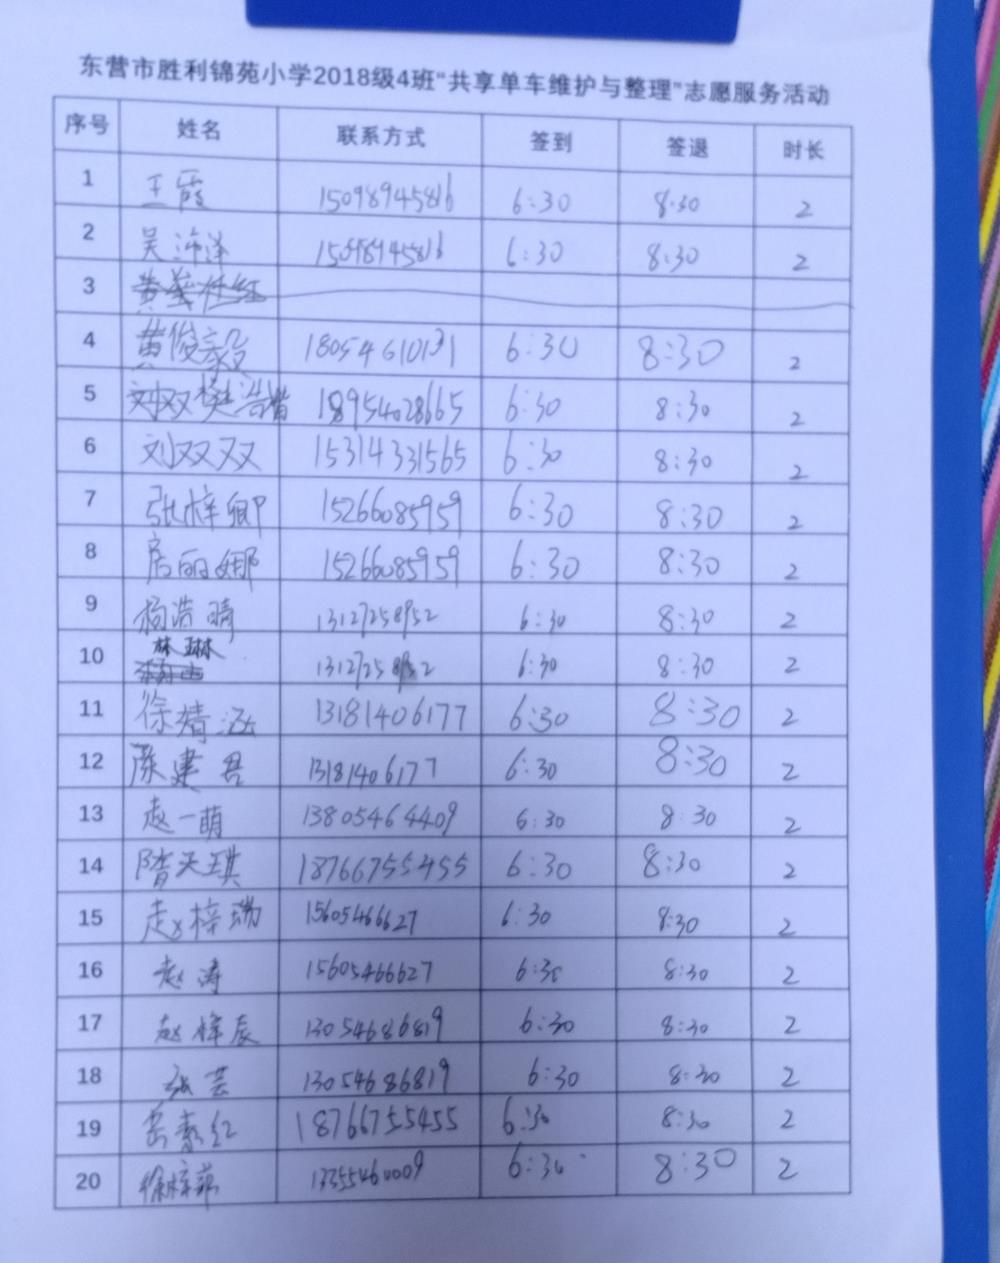 东营市胜利锦苑小学2018级4班“共享单车维护与整理”志愿服务活动
序号 姓名 联系方式 签到 签退 时长
1 王霞 15098945816 6:30 8:30 2
2 吴沛泽 15098945816 6:30 8:30 2
3
4 黄俊毅 18054610131 6:30 8:30 2
5 樊浩喆 18954028665 6:30 8:30 2
6 刘双双 15314331565 6:30 8:30 2
7 张梓卿 15266085959 6:30 8:30 2
8 房丽娜 15266085959 6:30 8:30 2
9 杨浩晴 13127258952 6:30 8:30 2
10 林琳 13127258952 6:30 8:30 2
11 徐婧涵 13181406177 6:30 8:30 2
12 陈建君 13181406177 6:30 8:30 2
13 赵一萌 13805464409 6:30 8:30 2
14 隋天琪 18766755455 6:30 8:30 2
15 赵梓瑞 15605466627 6:30 8:30 2
16 赵涛 15605466627 6:30 8:30 2
17 赵梓辰 13054686819 6:30 8:30 2
18 张芸 13054686819 6:30 8:30 2
19 18766755455 6:30 8:30 2
20 徐梓菲 13355460009 6:30 8:30 2